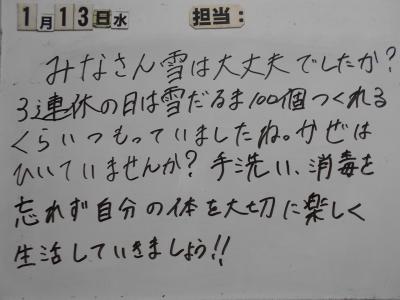 1月13日水 担当:
みなさん雪は大丈夫でしたか?
3連休の日は雪だるま100個つくれる
くらいつもっていましたね。かぜは
ひいていませんか?手洗い、消毒を
忘れず自分の体を大切に楽しく
生活していきましょう!!